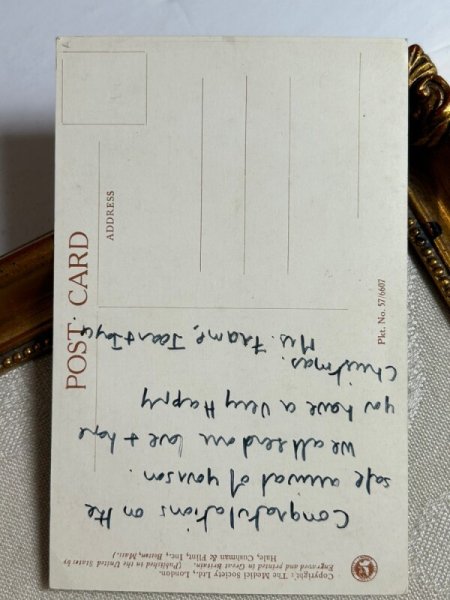 POST CARD
ADDRESS
Pkt. No. 57/6607
Congratulations on the
safe arrival of your son.
We all send our love & hope
you have a Very Happy
Christmas.
Mrs. Frame, Joan & Joyce.
Copyright: The Medici Society Ltd., London.
Engraved and printed in Great Britain.
(Published in the United States by
Hale, Cushman & Flint, Inc., Boston, Mass.)